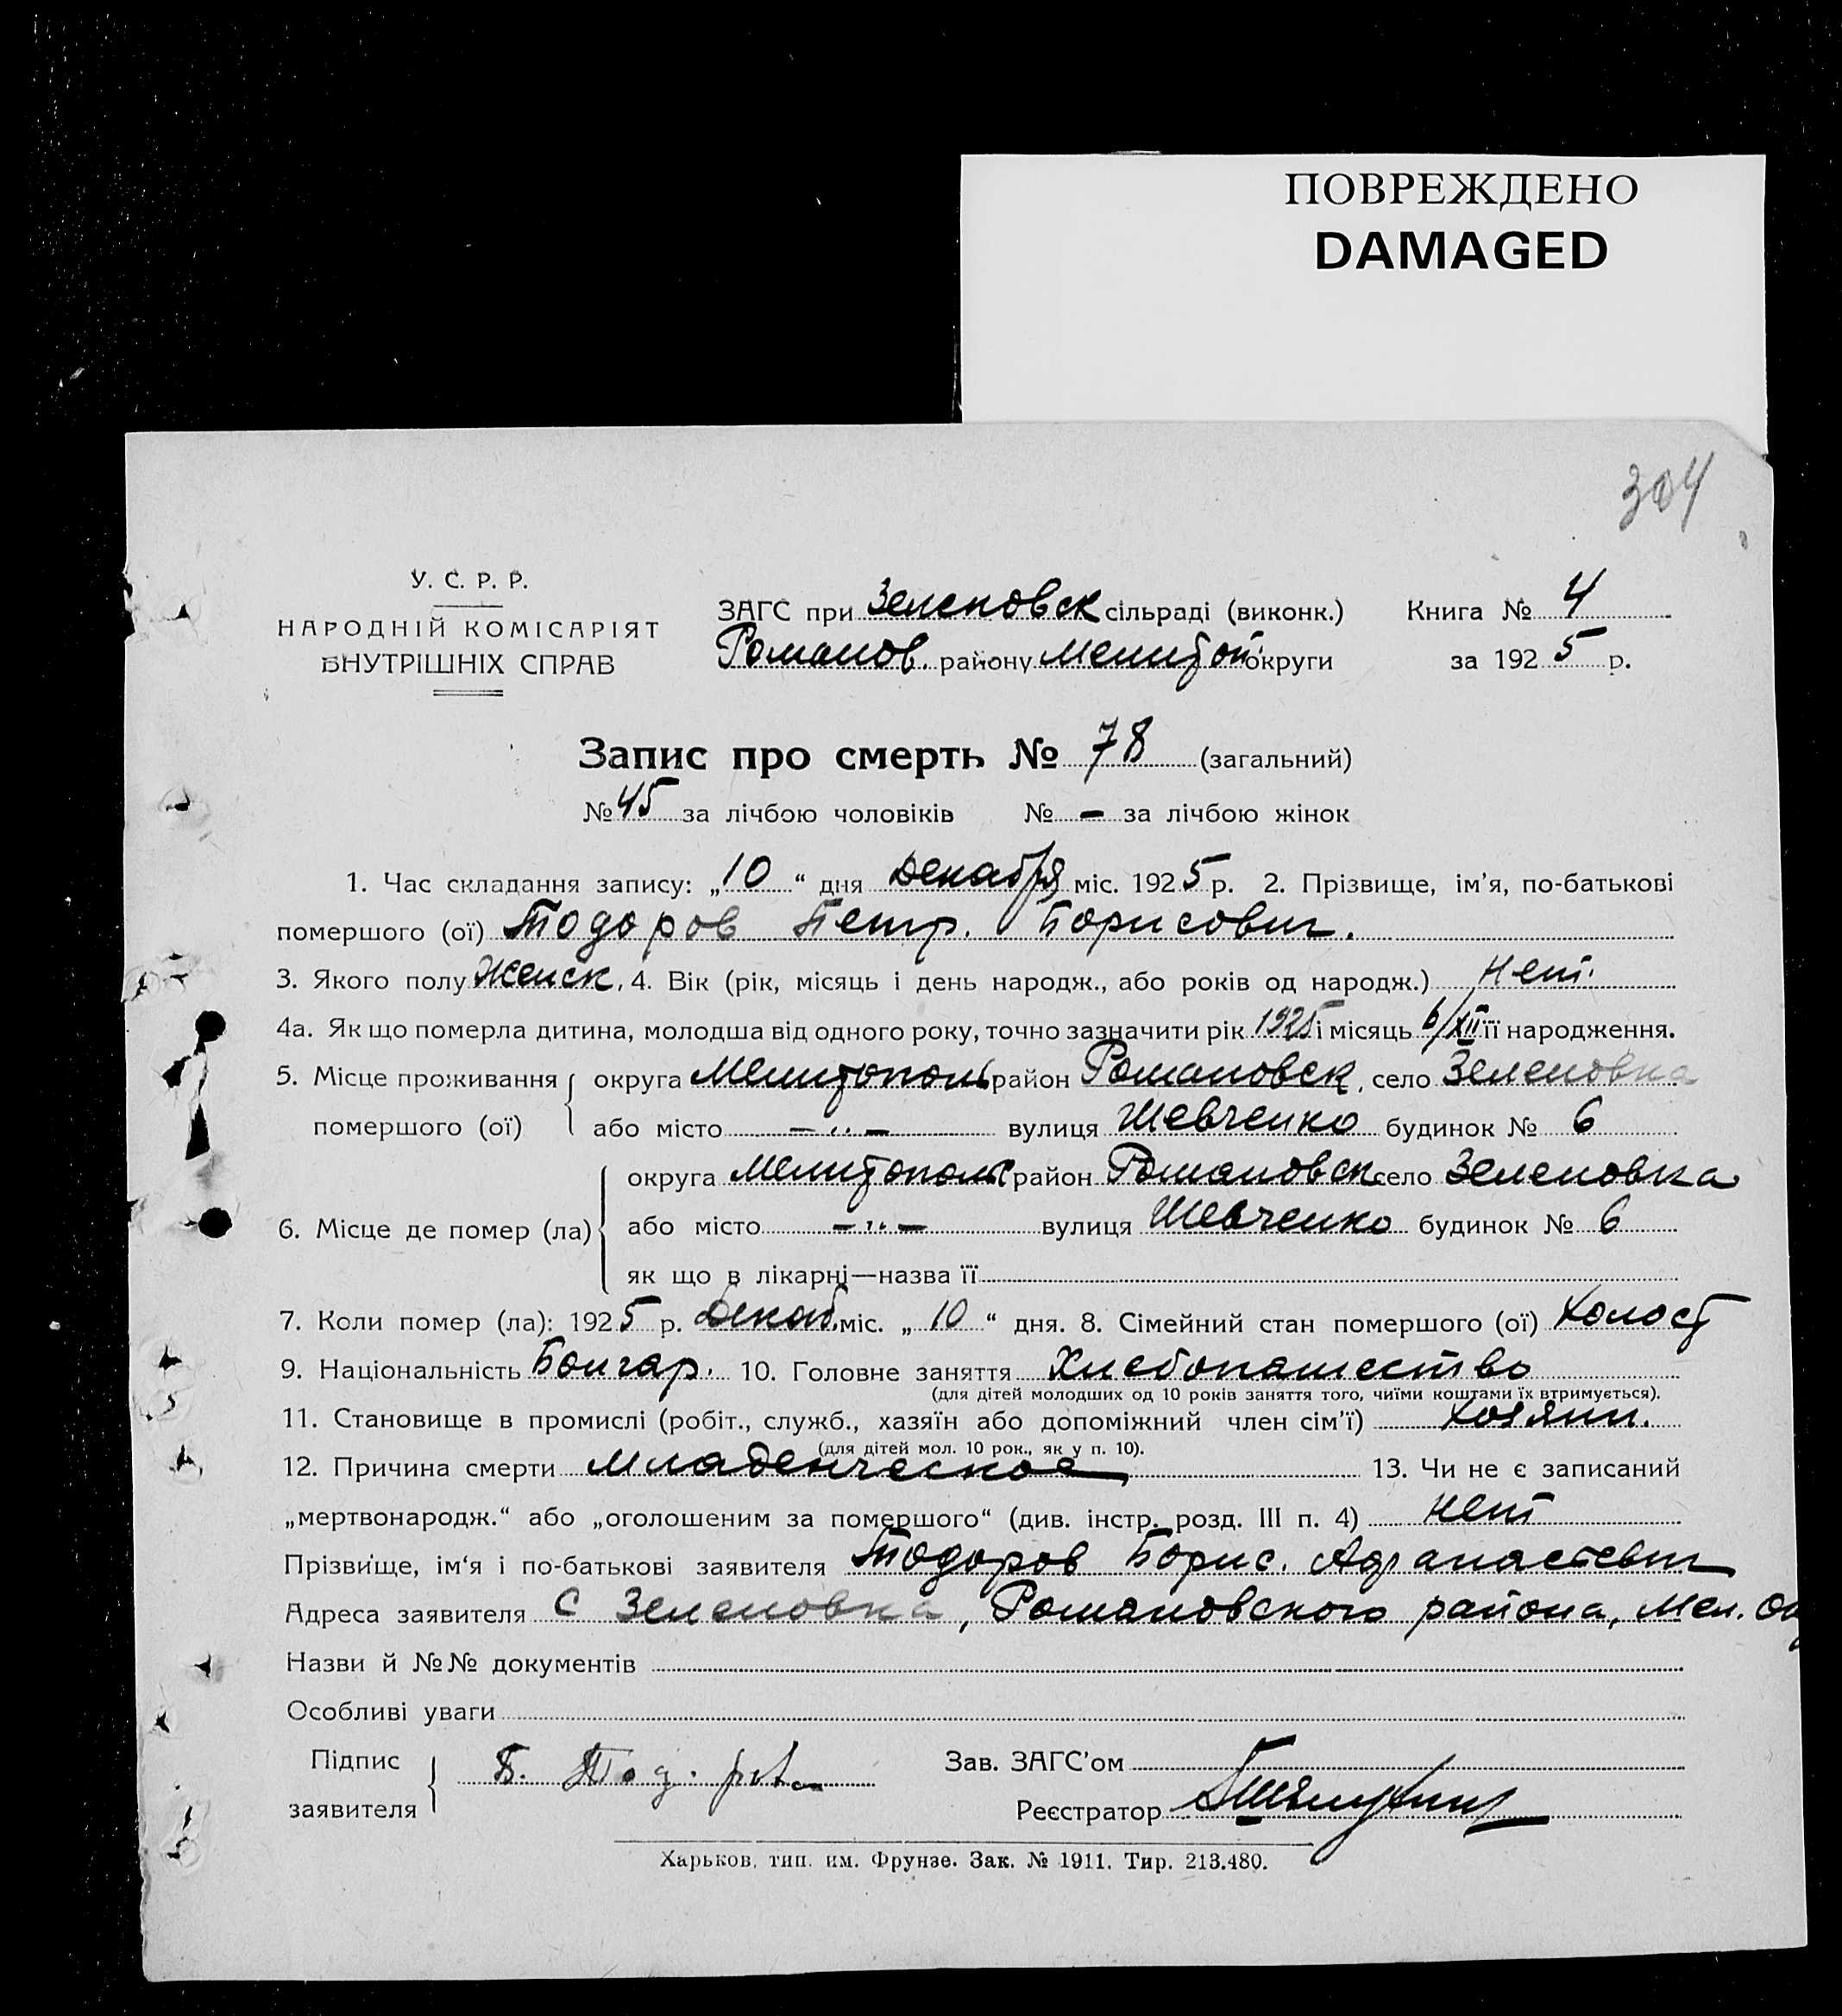 ПОВРЕЖДЕНО
DAMAGED
304
У. С. Р. Р.
НАРОДНІЙ КОМІСАРІЯТ
ВНУТРІШНІХ СПРАВ
ЗАГС при Зеленовск сільраді (виконк.) Книга № 4
Романов. району Мелитоп. округи за 1925 р.
Запис про смерть № 78 (загальний)
№ 45 за лічбою чоловіків № — за лічбою жінок
1. Час складання запису: „10“ дня Декабря міс. 1925 р. 2. Прізвище, ім’я, по-батькові
помершого (ої) Тодоров Петр. Борисович.
3. Якого полу Женск. 4. Вік (рік, місяць і день народж., або років од народж.) Нет.
4а. Як що померла дитина, молодша від одного року, точно зазначити рік 1925 і місяць 6/XII її народження.
5. Місце проживання помершого (ої) округа Мелитополь район Романовск, село Зеленовка
або місто —„— вулиця Шевченко будинок № 6
6. Місце де помер (ла) округа Мелитополь район Романовск село Зеленовка
або місто —„— вулиця Шевченко будинок № 6
як що в лікарні—назва її
7. Коли помер (ла): 1925 р. Декаб. міс. „10“ дня. 8. Сімейний стан помершого (ої) Холост
9. Національність Болгар. 10. Головне заняття Хлебопашество
(для дітей молодших од 10 років заняття того, чиїми коштами їх втримується).
11. Становище в промислі (робіт., служб., хазяїн або допоміжний член сім’ї) Хозяин.
(для дітей мол. 10 рок., як у п. 10).
12. Причина смерти Младенческое 13. Чи не є записаний
„мертвонародж.“ або „оголошеним за помершого“ (див. інстр. розд. III п. 4) нет
Прізвище, ім‘я і по-батькові заявителя Тодоров Борис.
Адреса заявителя С Зеленовка, Романовского района, Мел. Ок
Назви й №№ документів
Особливі уваги
Підпис заявителя Б. Тодорова Зав. ЗАГС’ом
Реєстратор
Харьков, тип. им. Фрунзе. Зак. № 1911. Тир. 213.480.